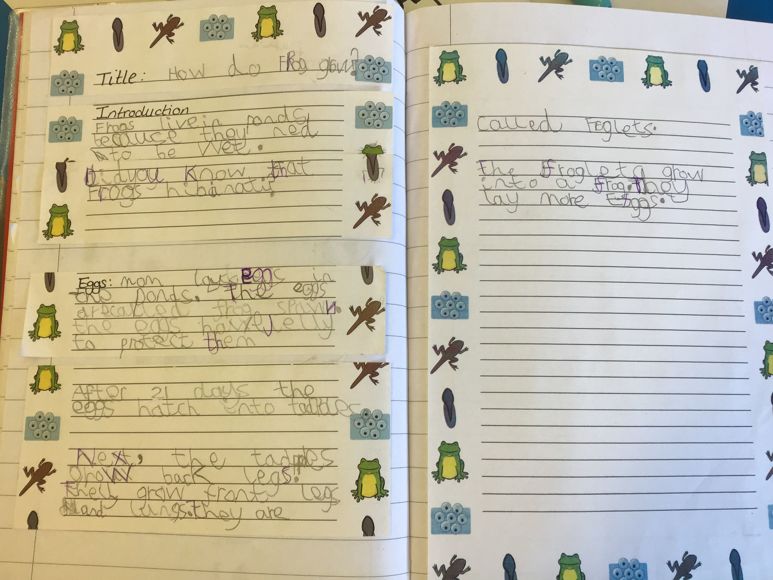 Title: How do Frog grow?
Introduction
Frogs live in ponds
because they ned
to be wet.
Did you know that
Frogs hibanatis
Eggs: mom lays eggs in
the ponds. the eggs
are called frog spawn.
the eggs have jelly
to protect them
After 21 days the
eggs hatch into tadples
Next, the tadples
grow back legs.
They grow front legs
and lungs. they are
called Froglets.
the froglets grow
into a frog. They
lay more Eggs.